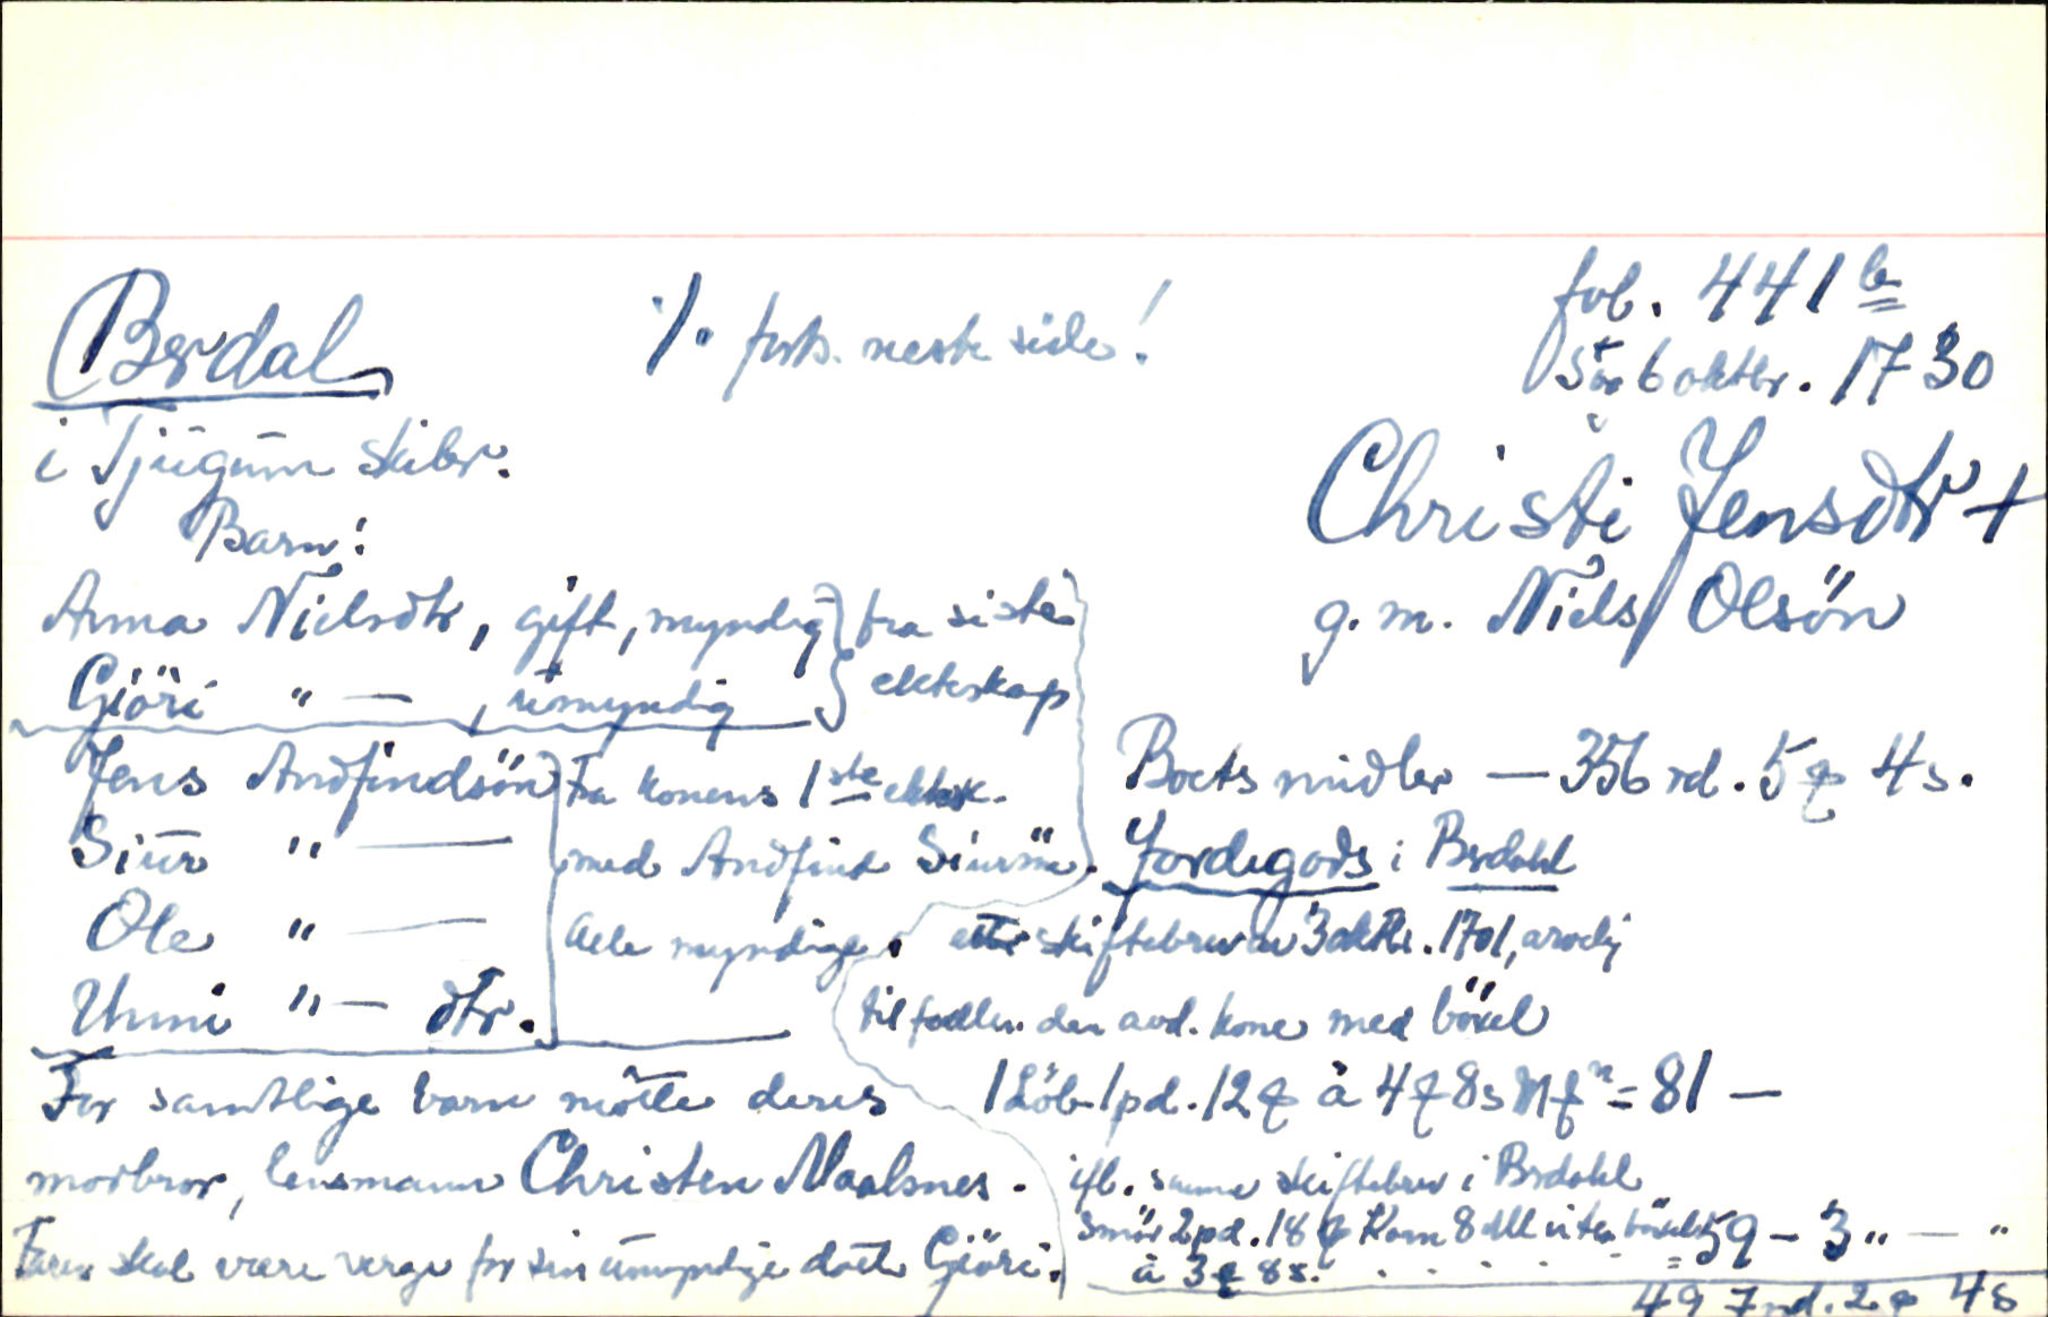 Brdal
i Tjugum skibr.
·/. forts. neste side!
fol. 441 b
5 6 oktbr. 1730
Christi Jensdtr +
g. m. Niels Olsön
Barn:
Anna Nielsdtr, gift, myndig } fra siste
Giöri " — , umyndig } ekteskap
Jens Andfindsön } Fra konens 1ste ektesk.
Siur " — med Andfind Siursön.
Ole " — Alle myndige.
Unni " — dtr.
For samtlige barn mötte deres
morbror, lensmann Christen Maalsnes.
Faren skal være verge for sin umyndige datt. Giöri.
Boets midler — 356 rd. 5 ₰ 4 s.
Jordegods i Brdahl
etter skiftebrev av 3 oktbr. 1701, arvelig
tilfallen den avd. kone med böxel
1 Löb 1 pd. 12 ₰ à 4 ₰ 8 s = 81 —
ifl. samme skiftebrev i Brdahl
Smör 2 pd. 18 ₰ Korn 8 uten böxel 59 – 3 " — "
à 3 ₰ 8 s. . . . . . =
497 rd. 2 ₰ 4 s